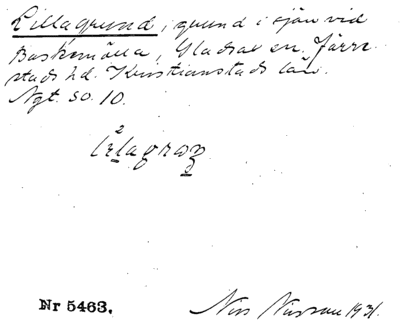 Lillagrund, grund i sjön vid
Baskemölla, Gladsax sn. Järre-
stads hd. Kristianstads län.
Ngt. so. 10.
Nr 5463.
Nils Nilsson 1931.